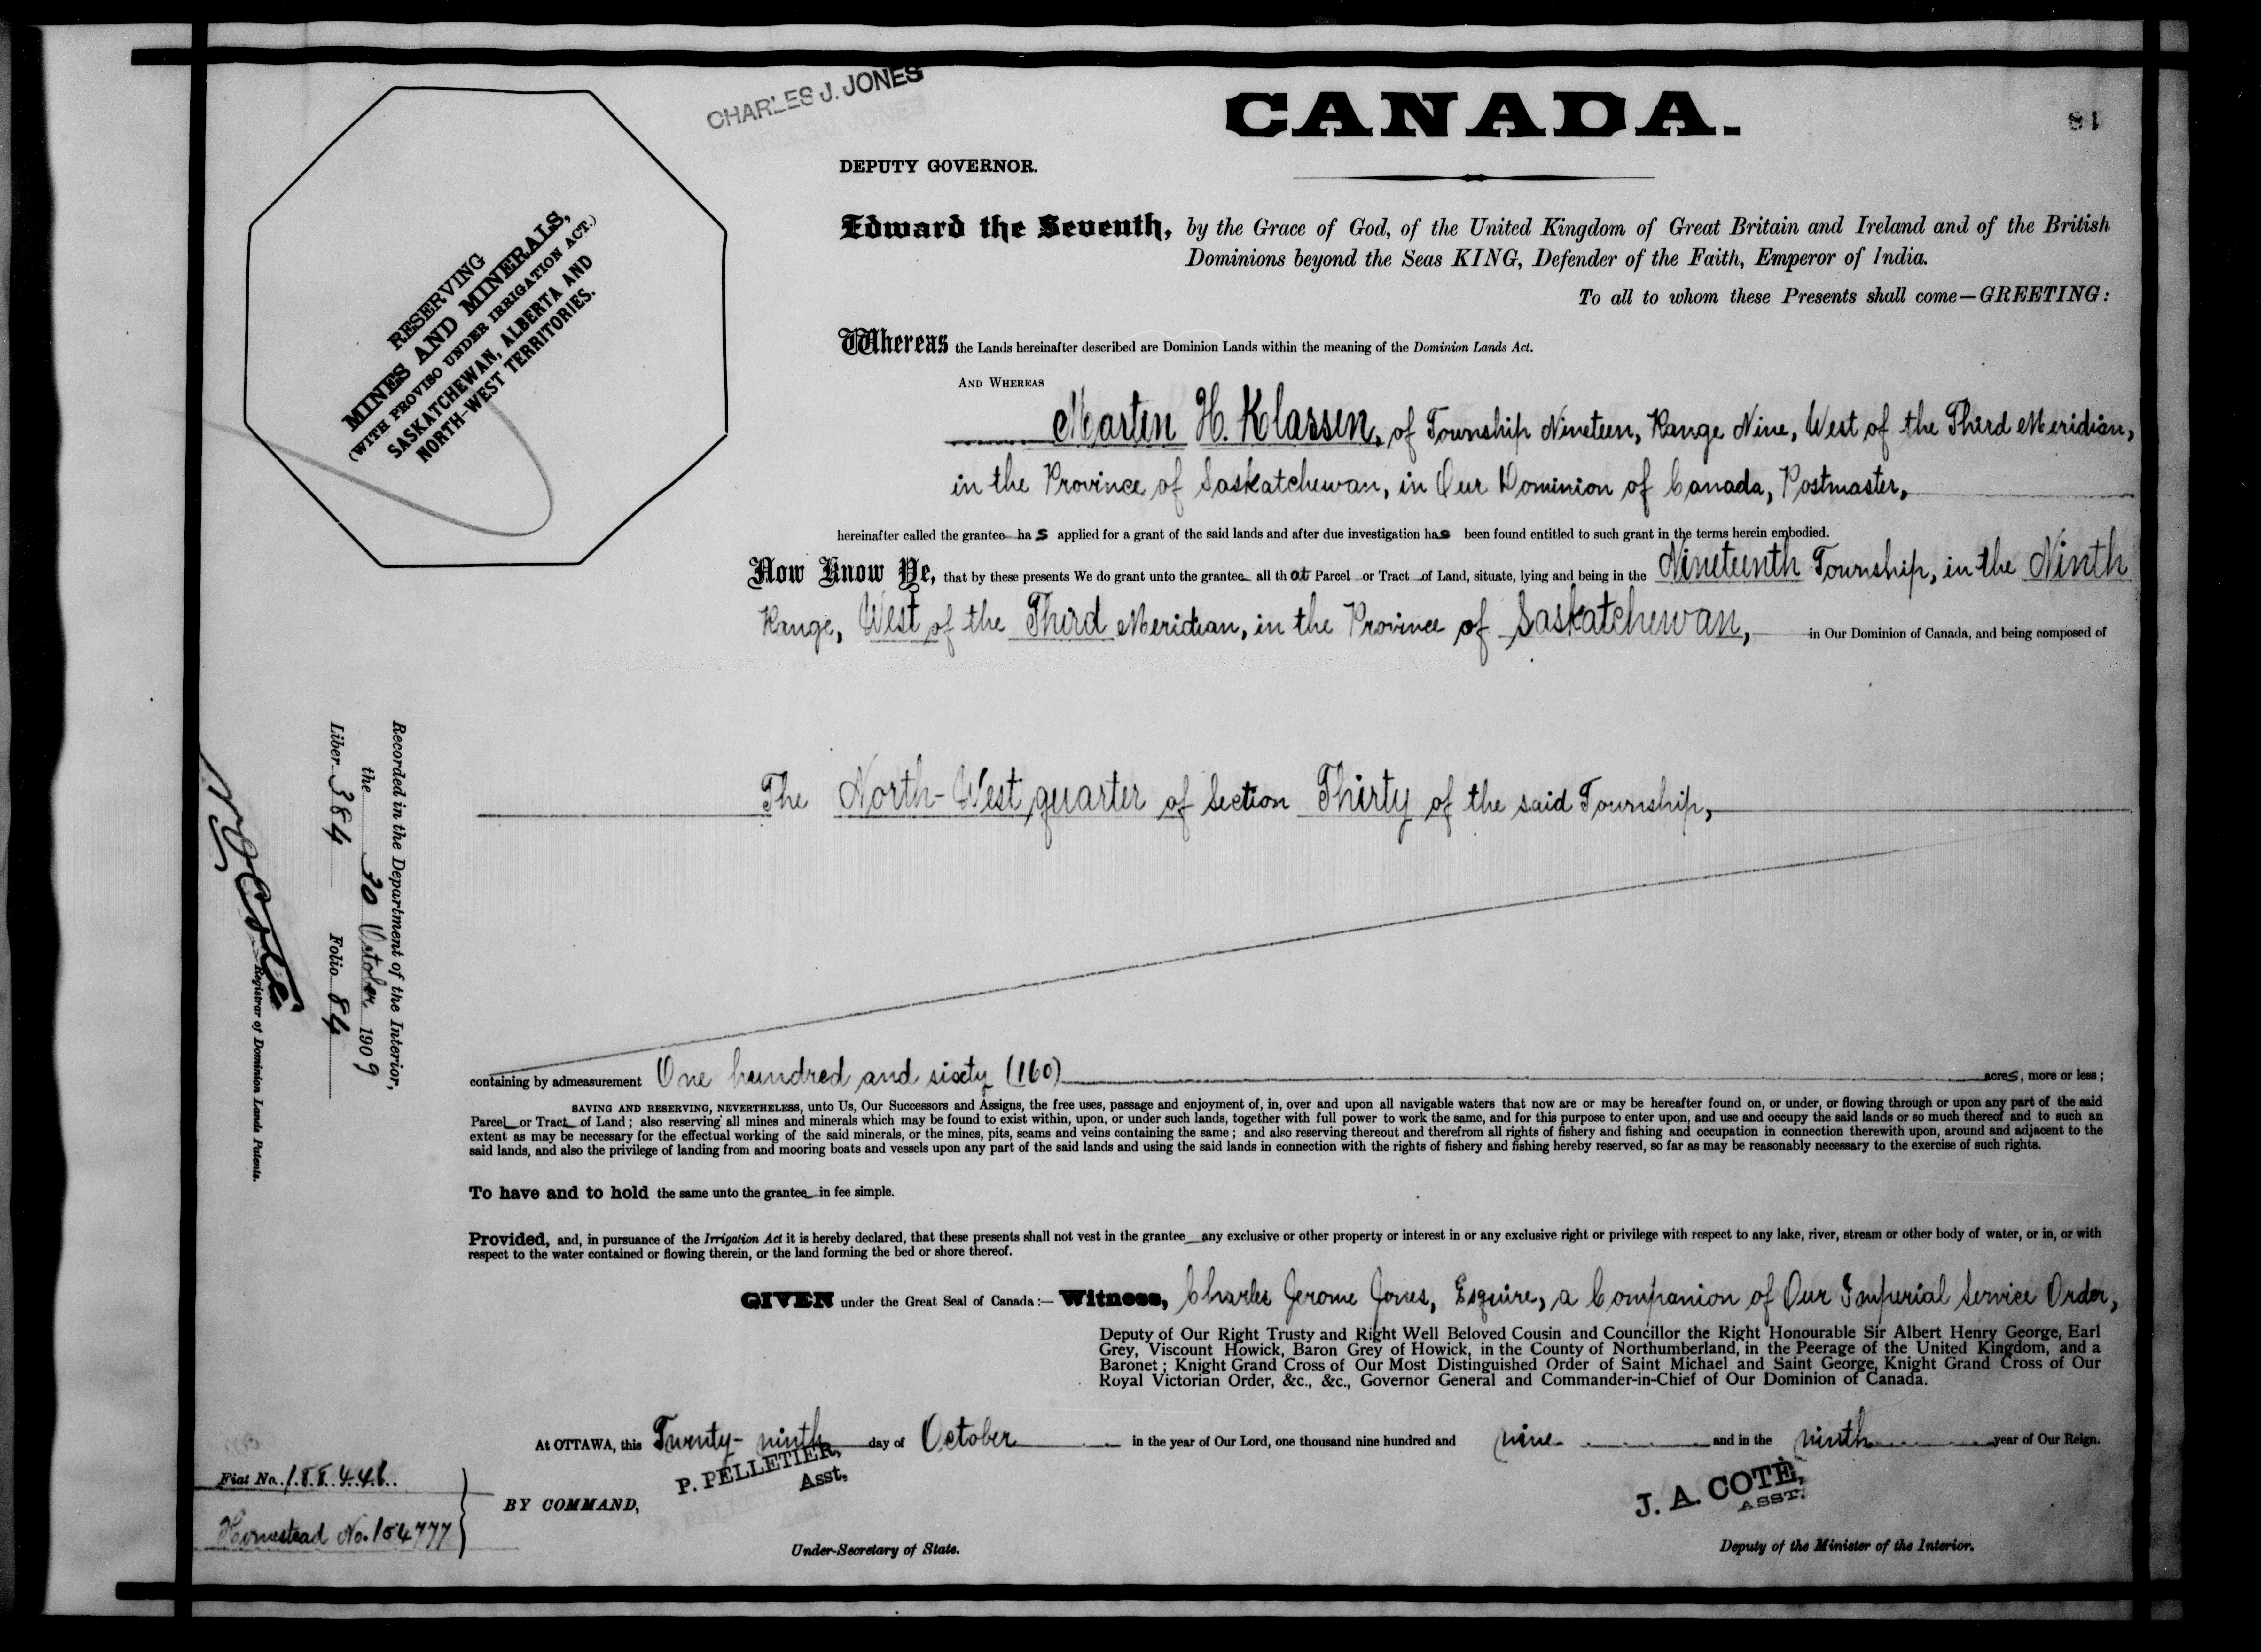 CHARLES J. JONES
CANADA.
DEPUTY GOVERNOR.
RESERVING
MINES AND MINERALS,
(WITH PROVISO UNDER IRRIGATION ACT.)
SASKATCHEWAN, ALBERTA AND
NORTH-WEST TERRITORIES.
Edward the Seventh, by the Grace of God, of the United Kingdom of Great Britain and Ireland and of the British
Dominions beyond the Seas KING, Defender of the Faith, Emperor of India.
To all to whom these Presents shall come—GREETING:
Whereas the Lands hereinafter described are Dominion Lands within the meaning of the Dominion Lands Act.
AND WHEREAS
Marten H. Klassen, of Township Nineteen, Range Nine, West of the Third Meridian,
in the Province of Saskatchewan, in Our Dominion of Canada, Postmaster,
hereinafter called the grantee has applied for a grant of the said lands and after due investigation has been found entitled to such grant in the terms herein embodied.
Now Know Ye, that by these presents We do grant unto the grantee all that Parcel or Tract of Land, situate, lying and being in the Nineteenth Township, in the Ninth
Range, West of the Third Meridian, in the Province of Saskatchewan, in Our Dominion of Canada, and being composed of
The North-West quarter of Section Thirty of the said Township,
Recorded in the Department of the Interior,
the 30 October 1909
Liber 384 Folio 84
Registrar of Dominion Lands Patents.
containing by admeasurement One hundred and sixty (160) acres, more or less;
SAVING AND RESERVING, NEVERTHELESS, unto Us, Our Successors and Assigns, the free uses, passage and enjoyment of, in, over and upon all navigable waters that now are or may be hereafter found on, or under, or flowing through or upon any part of the said
Parcel or Tract of Land; also reserving all mines and minerals which may be found to exist within, upon, or under such lands, together with full power to work the same, and for this purpose to enter upon, and use and occupy the said lands or so much thereof and to such an
extent as may be necessary for the effectual working of the said minerals, or the mines, pits, seams and veins containing the same; and also reserving thereout and therefrom all rights of fishery and fishing and occupation in connection therewith upon, around and adjacent to the
said lands, and also the privilege of landing from and mooring boats and vessels upon any part of the said lands and using the said lands in connection with the rights of fishery and fishing hereby reserved, so far as may be reasonably necessary to the exercise of such rights.
To have and to hold the same unto the grantee in fee simple.
Provided, and, in pursuance of the Irrigation Act it is hereby declared, that these presents shall not vest in the grantee any exclusive or other property or interest in or any exclusive right or privilege with respect to any lake, river, stream or other body of water, or in, or with
respect to the water contained or flowing therein, or the land forming the bed or shore thereof.
GIVEN under the Great Seal of Canada:— Witness, Charles Jerome Jones, Esquire, a Companion of Our Imperial Service Order,
Deputy of Our Right Trusty and Right Well Beloved Cousin and Councillor the Right Honourable Sir Albert Henry George, Earl
Grey, Viscount Howick, Baron Grey of Howick, in the County of Northumberland, in the Peerage of the United Kingdom, and a
Baronet; Knight Grand Cross of Our Most Distinguished Order of Saint Michael and Saint George, Knight Grand Cross of Our
Royal Victorian Order, &c., &c., Governor General and Commander-in-Chief of Our Dominion of Canada.
At OTTAWA, this Twenty-ninth day of October in the year of Our Lord, one thousand nine hundred and nine and in the ninth year of Our Reign.
P. PELLETIER,
Asst,
J. A. COTÉ,
ASST.
Fiat No. 188446
BY COMMAND,
Homestead No. 154777
Under-Secretary of State.
Deputy of the Minister of the Interior.